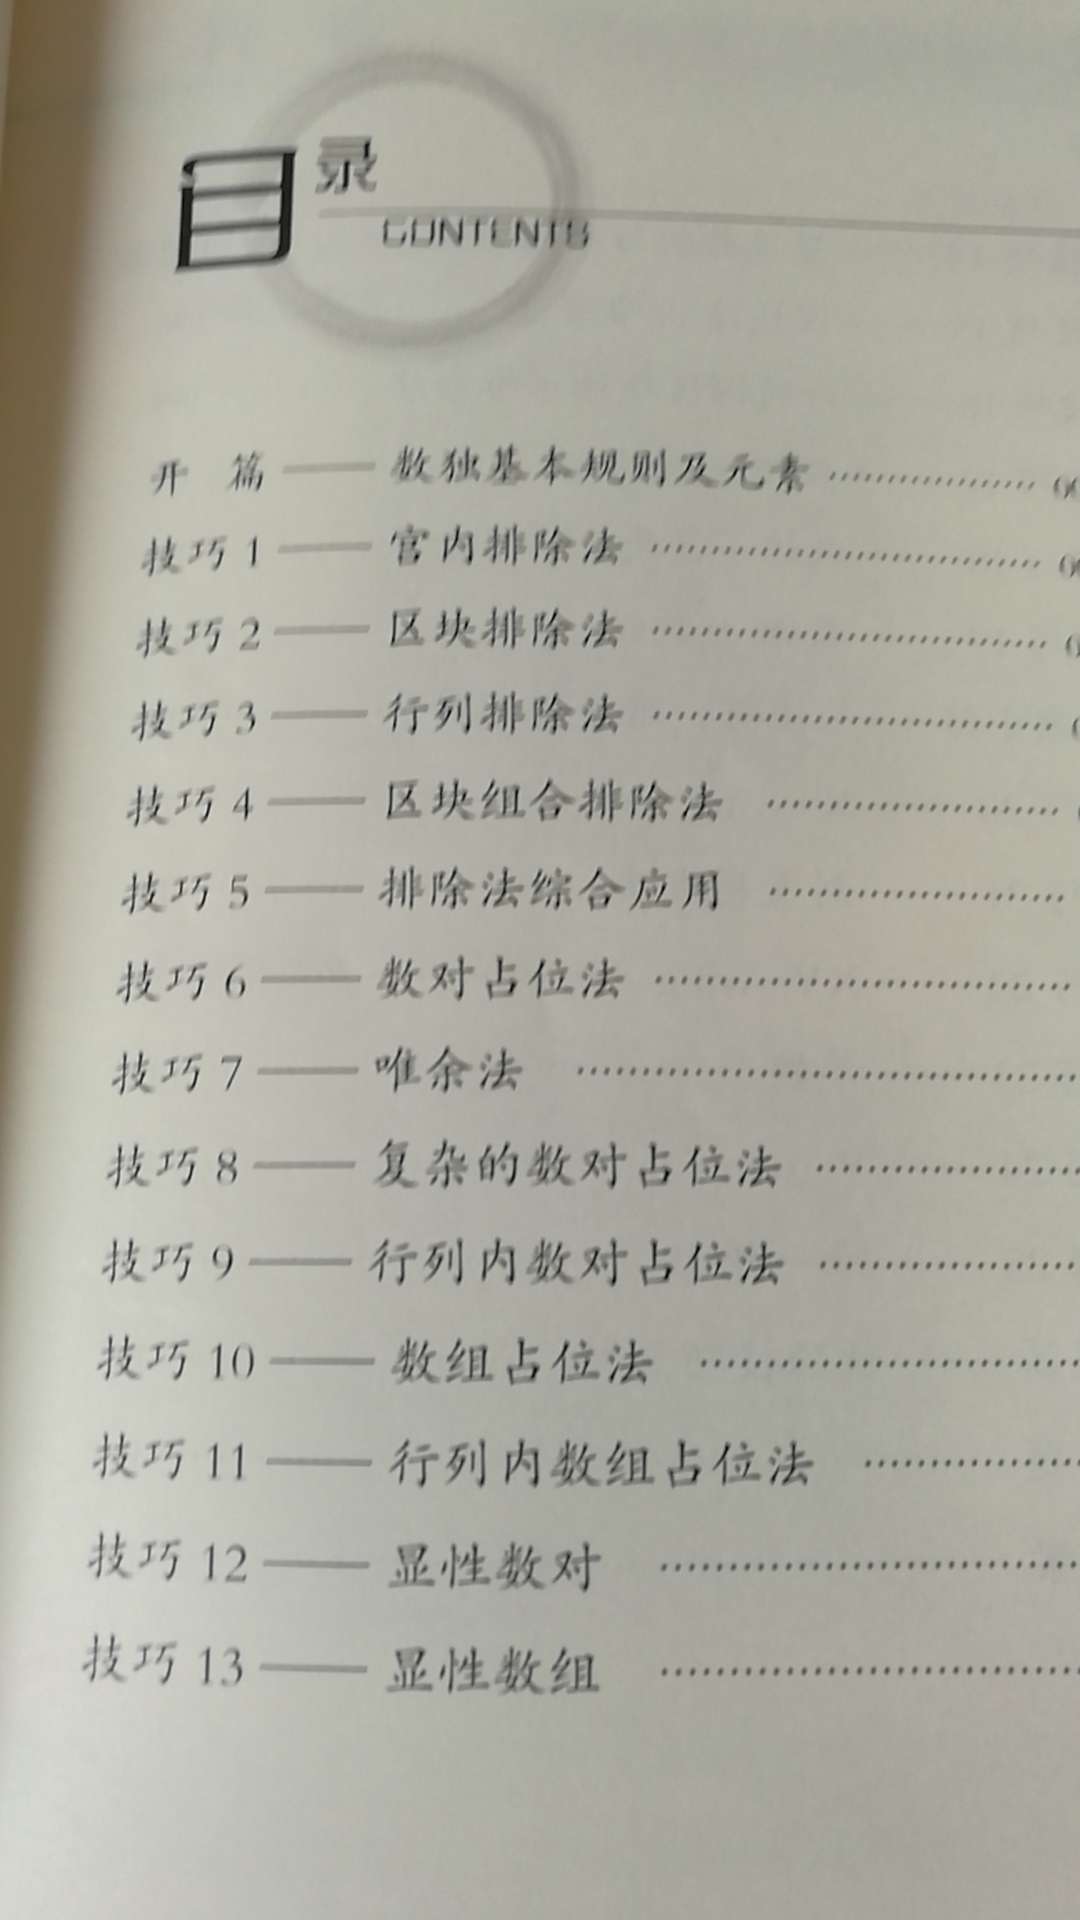 目录
CONTENTS
开 篇 —— 数独基本规则及元素 ……………
技巧 1 —— 宫内排除法 ……………
技巧 2 —— 区块排除法 ……………
技巧 3 —— 行列排除法 ……………
技巧 4 —— 区块组合排除法 ……………
技巧 5 —— 排除法综合应用 ……………
技巧 6 —— 数对占位法 ……………
技巧 7 —— 唯余法 ……………
技巧 8 —— 复杂的数对占位法 ……………
技巧 9 —— 行列内数对占位法 ……………
技巧 10 —— 数组占位法 ……………
技巧 11 —— 行列内数组占位法 ……………
技巧 12 —— 显性数对 ……………
技巧 13 —— 显性数组 ……………